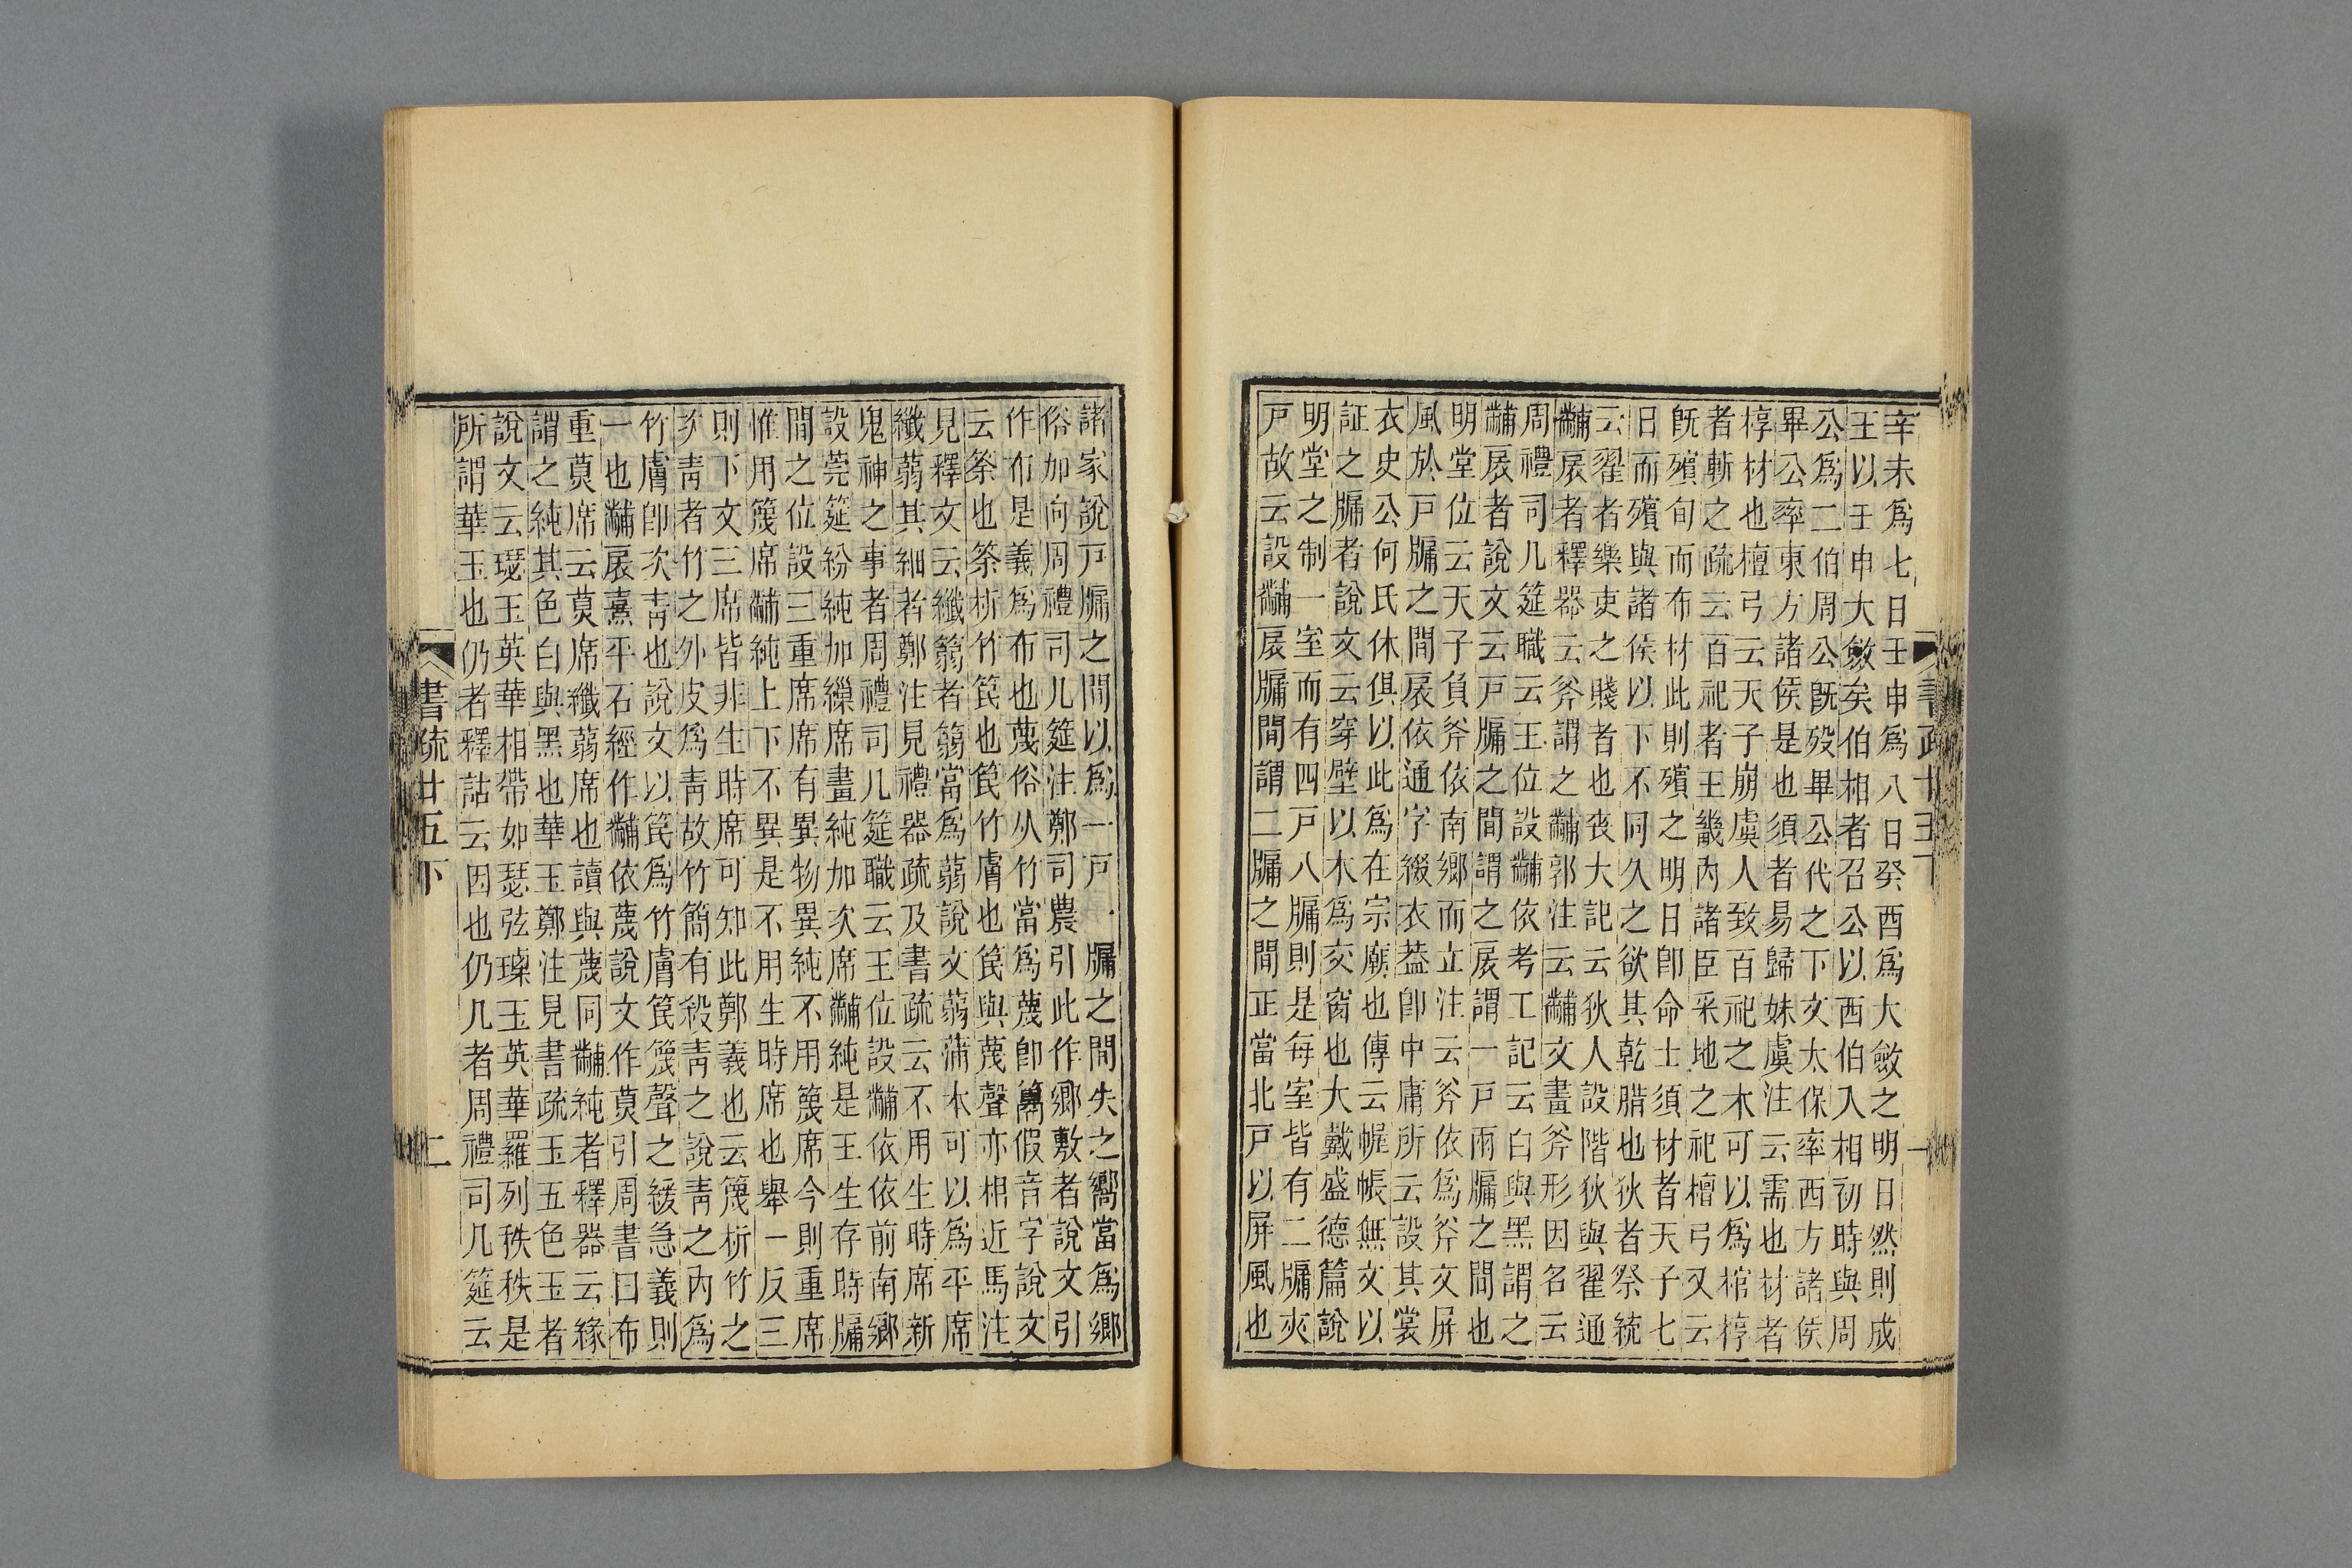 辛未爲七日壬申爲八日癸酉爲大斂之明日然則成
王以壬申大斂矣伯相者召公以西伯入相初時與周
公爲二伯周公既歿畢公代之下文太保率西方諸侯
畢公率東方諸侯是也須者易歸妹虞注云需也材者
椁材也檀弓云天子崩虞人致百祀之木可以爲棺椁
者斬之疏云百祀者王畿內諸臣采地之祀檀弓又云
既殯旬而布材此則殯之明日卽命士須材者天子七
日而殯與諸侯以下不同久之欲其乾腊也狄者祭統
云翟者樂吏之賤者也喪大記云狄人設階狄與翟通
黼扆者釋器云斧謂之黼郭注云黼文畫斧形因名云
周禮司几筵職云王位設黼依考工記云白與黑謂之
黼扆者說文云戸牖之間謂之扆謂一戸兩牖之間也
明堂位云天子負斧依南鄉而立注云斧依爲斧文屏
風於戸牖之間扆依通字綴衣葢卽中庸所云設其裳
衣史公何氏休俱以此爲在宗廟也傳云幄帳無文以
証之牖者說文云穿壁以木爲交窗也大戴盛德篇說
明堂之制一室而有四戸八牖則是每室皆有二牖夾
戸故云設黼扆牖間謂二牖之間正當北戸以屏風也
諸家說戸牖之間以爲一戸一牖之間失之嚮當爲鄉
俗加向周禮司几筵注鄭司農引此作鄉敷者說文引
作布是義爲布也蔑俗从竹當爲蔑卽篾假音字說文
云筡也筡析竹笢也笢竹膚也笢與蔑聲亦相近馬注
見釋文云纖蒻者蒻當爲蒻說文蒻蒲本可以爲平席
纖蒻其細者鄭注見禮器疏及書疏云不用生時席新
鬼神之事者周禮司几筵職云王位設黼依依前南鄉
設莞筵紛純加繅席畫純加次席黼純是王生存時牖
間之位設三重席席有異物異純不用篾席今則重席
惟用篾席黼純上下不異是不用生時席也舉一反三
則下文三席皆非生時席可知此鄭義也云篾析竹之
次青者竹之外皮爲青故竹簡有殺青之說青之內爲
竹膚卽次青也說文以笢爲竹膚笢篾聲之緩急義則
一也黼扆熹平石經作黼依蔑說文作莫引周書曰布
重莫席云莫席纖蒻席也讀與蔑同黼純者釋器云緣
謂之純其色白與黑也華玉鄭注見書疏玉五色玉者
說文云璱玉英華相帶如瑟弦瑮玉英華羅列秩秩是
所謂華玉也仍者釋詁云因也仍几者周禮司几筵云
書疏廿五下
二